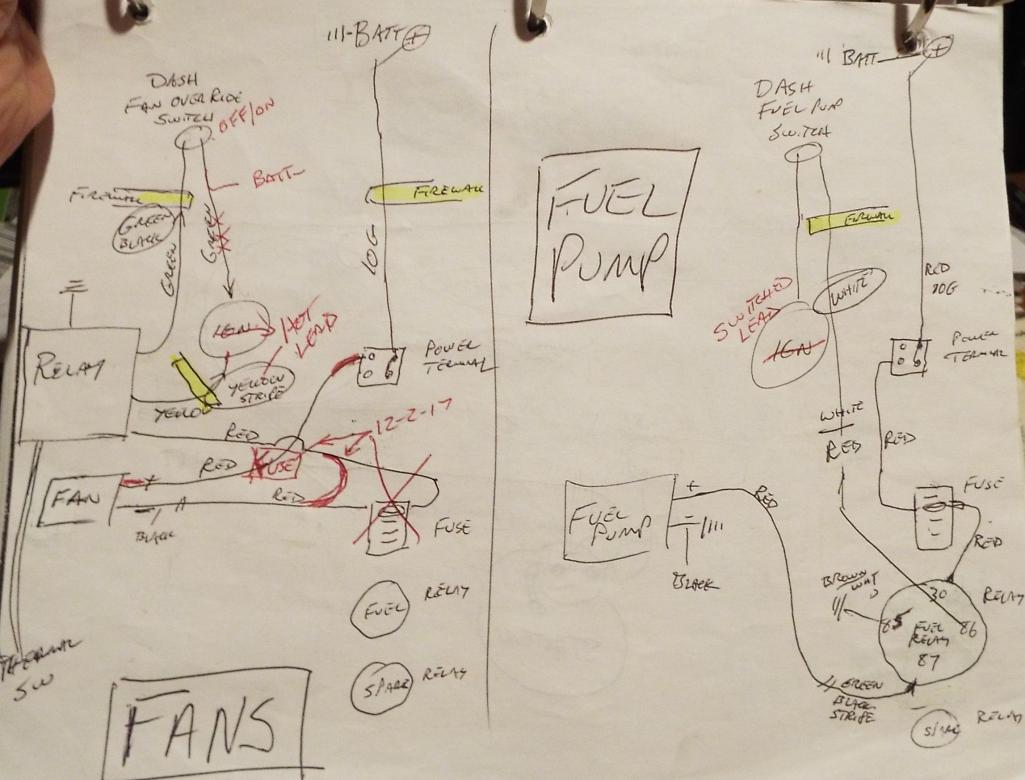 BATT +
DASH
FAN OVERRIDE
SWITCH
OFF/ON
BATT
FIREWALL
GREEN
BLACK
GREEN
GREEN
FIREWALL
10G
IGN
HOT
LEAD
RELAY
YELLOW
STRIPE
YELLOW
POWER
TERMINAL
RED
12-2-17
RED
FUSE
FAN
+
-
RED
BLACK
FUSE
FUEL
RELAY
THERMAL
SW
SPARE
RELAY
FANS
BATT +
DASH
FUEL PUMP
SWITCH
FUEL
PUMP
FIREWALL
SWITCHED
LEAD
IGN
WHITE
RED
10G
POWER
TERMINAL
WHITE
RED
RED
FUEL
PUMP
+
RED
BLACK
FUSE
RED
BROWN/WHT
30
RELAY
85
86
FUEL
RELAY
87
GREEN
BLACK
STRIPE
RELAY